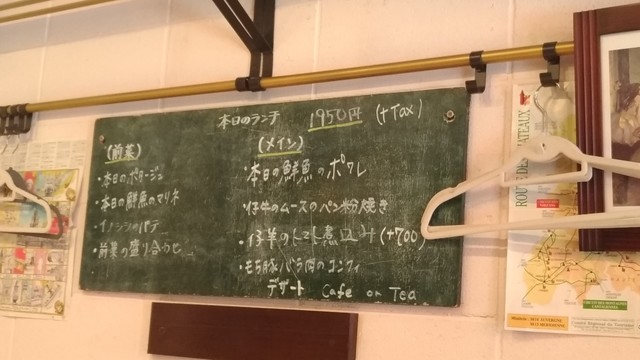 本日のランチ 1950円 (+Tax)
(前菜)
・本日のポタージュ
・本日の鮮魚のマリネ
・イノシシのパテ
・前菜の盛り合わせ
(メイン)
・本日の鮮魚のポワレ
・仔牛のムースのパン粉焼き
・仔羊のトマト煮込み (+700)
・もち豚バラ肉のコンフィ
デザート Cafe or Tea
ROUTE DES
CHATEAUX